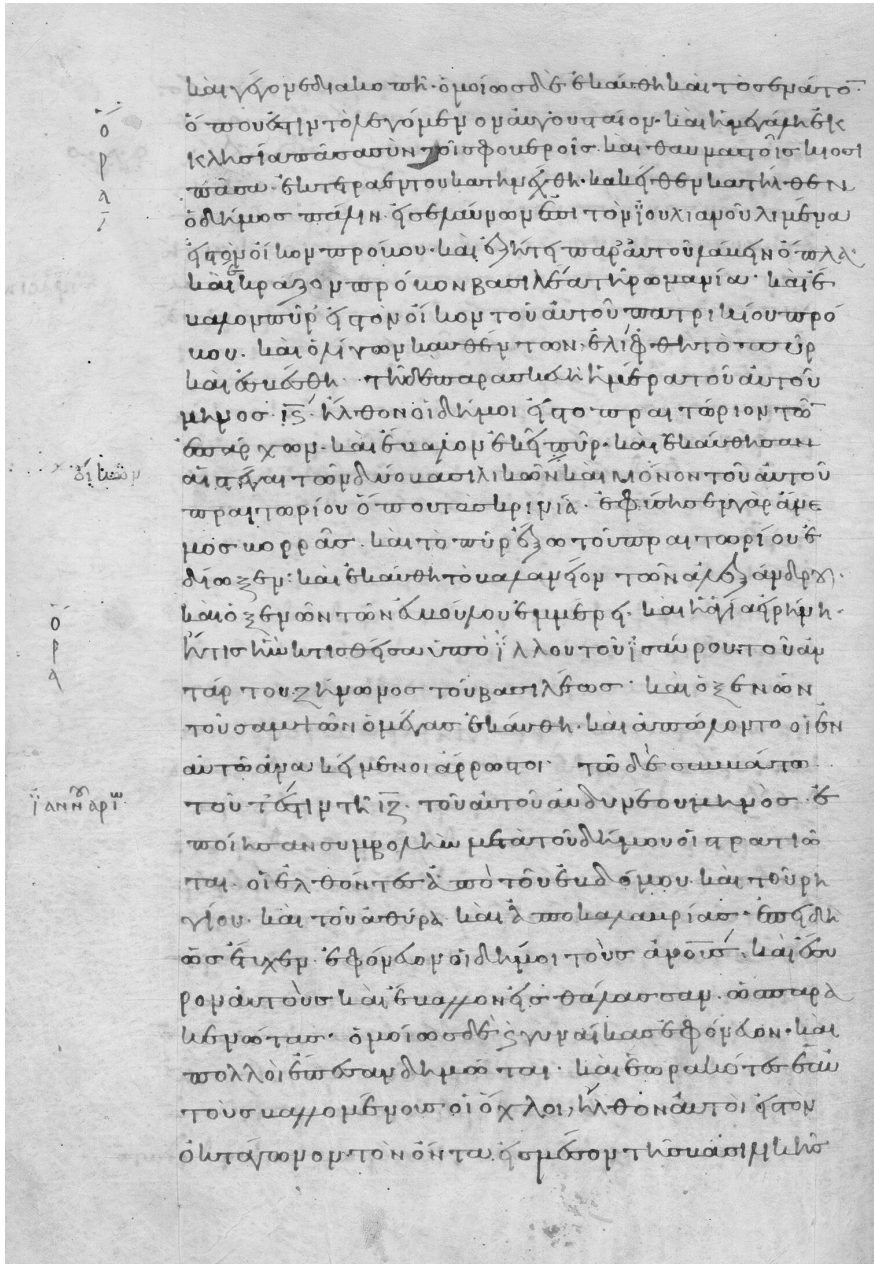 καὶ γέγονε διακοπή· ὁμοίως δὲ ἐκαύθη καὶ τὸ σενάτο
ὅπου ἐστιν τὸ λεγόμενον αὐγουσταῖον· καὶ ἡ μεγάλη ἐκ
κλησία πᾶσα σὺν τοῖς φουβεροῖς καὶ θαυμαστοῖς κίοσι
πᾶσα ἐκ τετραέντου κατηνέχθη· κακεῖθεν κατῆλθεν
ὁ δῆμος πάλιν εἰσελαύνων ἐπὶ τὸν ϊουλιανοῦ λιμένα
εἰς τὸν οἶκον πρόβου· καὶ ἐζήτει παρ' αὐτοῦ λαβεῖν ὅπλα·
καὶ ἔκραζον πρόβον βασιλέα τῆ ρωμανία· καὶ ἔ
βαλον πῦρ εἰς τὸν οἶκον τοῦ αὐτοῦ πατρικίου πρό
βου· καὶ ὀλίγων καυθέντων ἐλίφθη τὸ πῦρ
καὶ ἐσβέσθη· τῆ δὲ παρασκευῆ ἡμέρα τοῦ αὐτοῦ
μηνὸς ις ἦλθον οἱ δῆμοι εἰς τὸ πραιτώριον τῶ
ἐπάρχων· καὶ ἔβαλον ἐκεῖ πῦρ· καὶ ἐκαύθησαν
αἱ στέγαι τῶν δύο βασιλικῶν καὶ μόνον τοῦ αὐτοῦ
πραιτωρίου ὅπου τὰ σκρινία· ἐφύσησεν γὰρ ἄνε
μος βορρᾶς· καὶ τὸ πῦρ ἔξω τοῦ πραιτωρίου ἐ
δίωξεν· καὶ ἐκαύθη τὸ βαλανεῖον τῶν ἀλεξάνδρου·
καὶ ὁ ξενὼν τῶν εὐβούλου ἐν μέρει· καὶ ἡ ἁγία εἰρήνη·
ἥτις ἦν κτισθεῖσα ὑπὸ ϊλλου τοῦ ϊσαύρου· τοῦ ἀν
τάρτου ζήνωνος τοῦ βασιλέως· καὶ ὁ ξενὼν
τοῦ σαμψὼν ὁ μέγας ἐκαύθη· καὶ ἀπώλοντο οἱ ἐν
αὐτῶ ἀνακείμενοι ἄρρωστοι· τῶ δὲ σαμβάτω
τουτέστιν τῆ ιζ τοῦ αὐτοῦ αὐδυνέου μηνός· ἐ
ποίησαν συμβολὴν μετὰ τοῦ δήμου οἱ στρατιῶ
ται οἱ ἐλθόντες ἀπὸ τοῦ ἑβδόμου καὶ τοῦ ρη
γίου· καὶ τοῦ ἀθύρα καὶ ἀπὸ καλαβρίας· ἐπειδὴ
ὡς εἶχεν ἐφόνευον οἱ δῆμοι τοὺς ἀνοῖς· καὶ ἔσυ
ρον αὐτοὺς καὶ ἔβαλλον εἰς θάλασσαν ὡς παρα
κενώτας· ὁμοίως δὲ ϛ γυναίκας ἐφόνευον· καὶ
πολλοὶ ἔπεσαν δημόται· καὶ ἑωρακότες ἑαυ
τοὺς βαλλομένους οἱ ὄχλοι, ἦλθον αὐτοὶ εἰς τὸν
ὀκτάγωνον τὸν ὄντα εἰς μέσον τῆς βασιλικῆς
ὅρα
ὅρα
ϊαννουαρίω